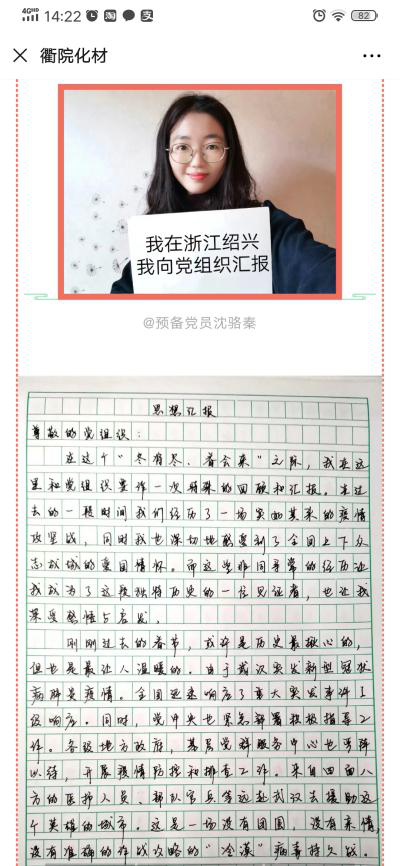 4GHD 14:22 淘 支 82
衢院化材
我在浙江绍兴
我向党组织汇报
@预备党员沈骆秦
思想汇报
尊敬的党组织：
在这个"冬有尽，春会来"之际，我在这
里和党组织要作一次特殊的回顾和汇报。在过
去的一段时间我们经历了一场突如其来的疫情
攻坚战，同时我也深切地感受到了全国上下众
志成城的爱国情怀。而这些非同寻常的经历让
我成为了这段独特历史的一位见证者，也让我
深受感悟与启发。
刚刚过去的春节，或许是历史最揪心的，
但也是最让人温暖的。由于武汉突发新型冠状
病肺炎疫情。全国迅速响应了重大突发事件I
级响应。同时，党中央也紧急部署积极指导工
作。各级地方政府，基层党群服务中心也严阵
以待，开展疫情防控和排查工作。来自四面八
方的医护人员、部队官兵等远赴武汉去援助这
个英雄的城市。这是一场没有团圆，没有亲情，
没有准确的作战攻略的"冷漠"病毒持久战。